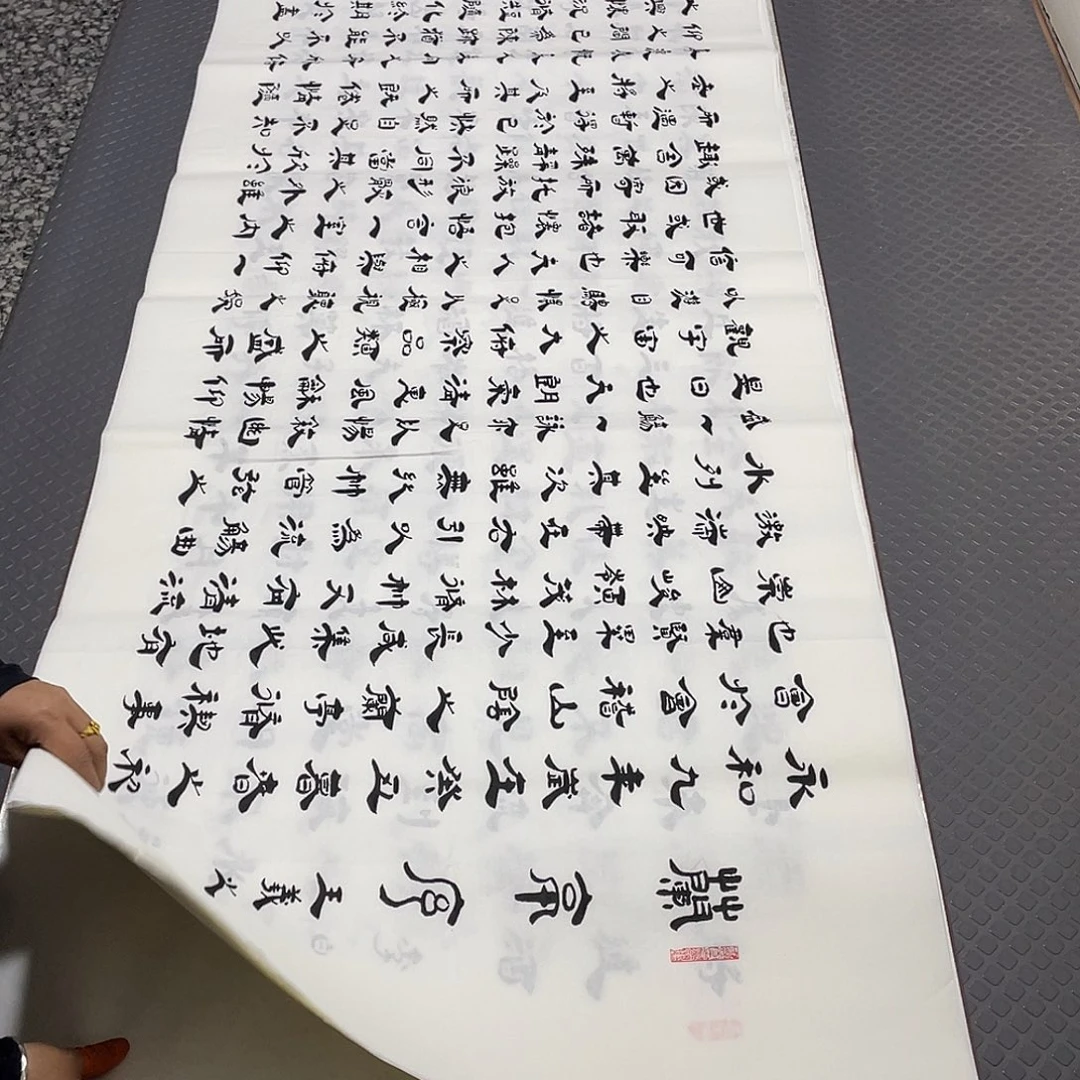 蘭亭序
王羲之
永和九年歲在癸丑暮春之初
會於會稽山陰之蘭亭脩禊事
也羣賢畢至少長咸集此地有
崇山峻領茂林脩竹又有清流
激湍映帶左右引以為流觴曲
水列坐其次雖無絲竹管弦之
盛一觴一詠亦足以暢敘幽情
是日也天朗氣清惠風和暢仰
觀宇宙之大俯察品類之盛所
以遊目騁懷足以極視聽之娛
信可樂也夫人之相與俯仰一
世或取諸懷抱悟言一室之內
或因寄所托放浪形骸之外雖
趣舍萬殊靜躁不同當其欣於
所遇暫得於己快然自足不知
老之將至及其所之既倦情隨